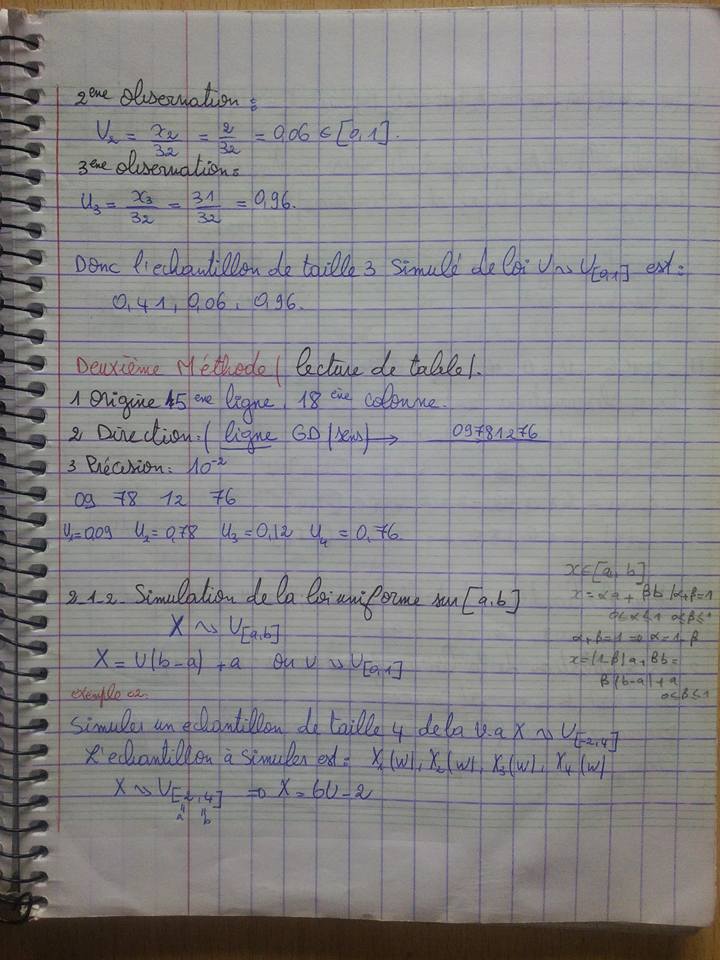 2ème observation :
U₂ = x₂/32 = 2/32 = 0,06 ∈ [0,1].
3ème observation :
U₃ = x₃/32 = 31/32 = 0,96.
Donc l'echantillon de taille 3 simulé de loi U ~ U[0,1] est :
0,41, 0,06, 0,96.
Deuxième Méthode ( lecture de table ).
1 Origine 45 ème ligne, 18 ème colonne.
2 Direction : ( ligne GD (sens) → 09781276
3 Précision : 10⁻²
09 78 12 76
U₁=0,09 U₂=0,78 U₃=0,12 U₄=0,76
2-1-2- Simulation de la loi uniforme sur [a,b]
X ~ U[a,b]
X = U(b-a) + a ou U ~ U[0,1]
x ∈ [a, b]
x = αa + βb / α+β=1
0≤α≤1 0≤β≤1
α+β=1 ⇒ α=1-β
x=(1-β)a+βb=
β(b-a)+a
0≤β≤1
exemple 02.
Simuler un echantillon de taille 4 de la v.a X ~ U[-2,4]
L'echantillon à simuler est : X₁(w), X₂(w), X₃(w), X₄(w)
X ~ U[-2,4] ⇒ X = 6U-2
" "
a b